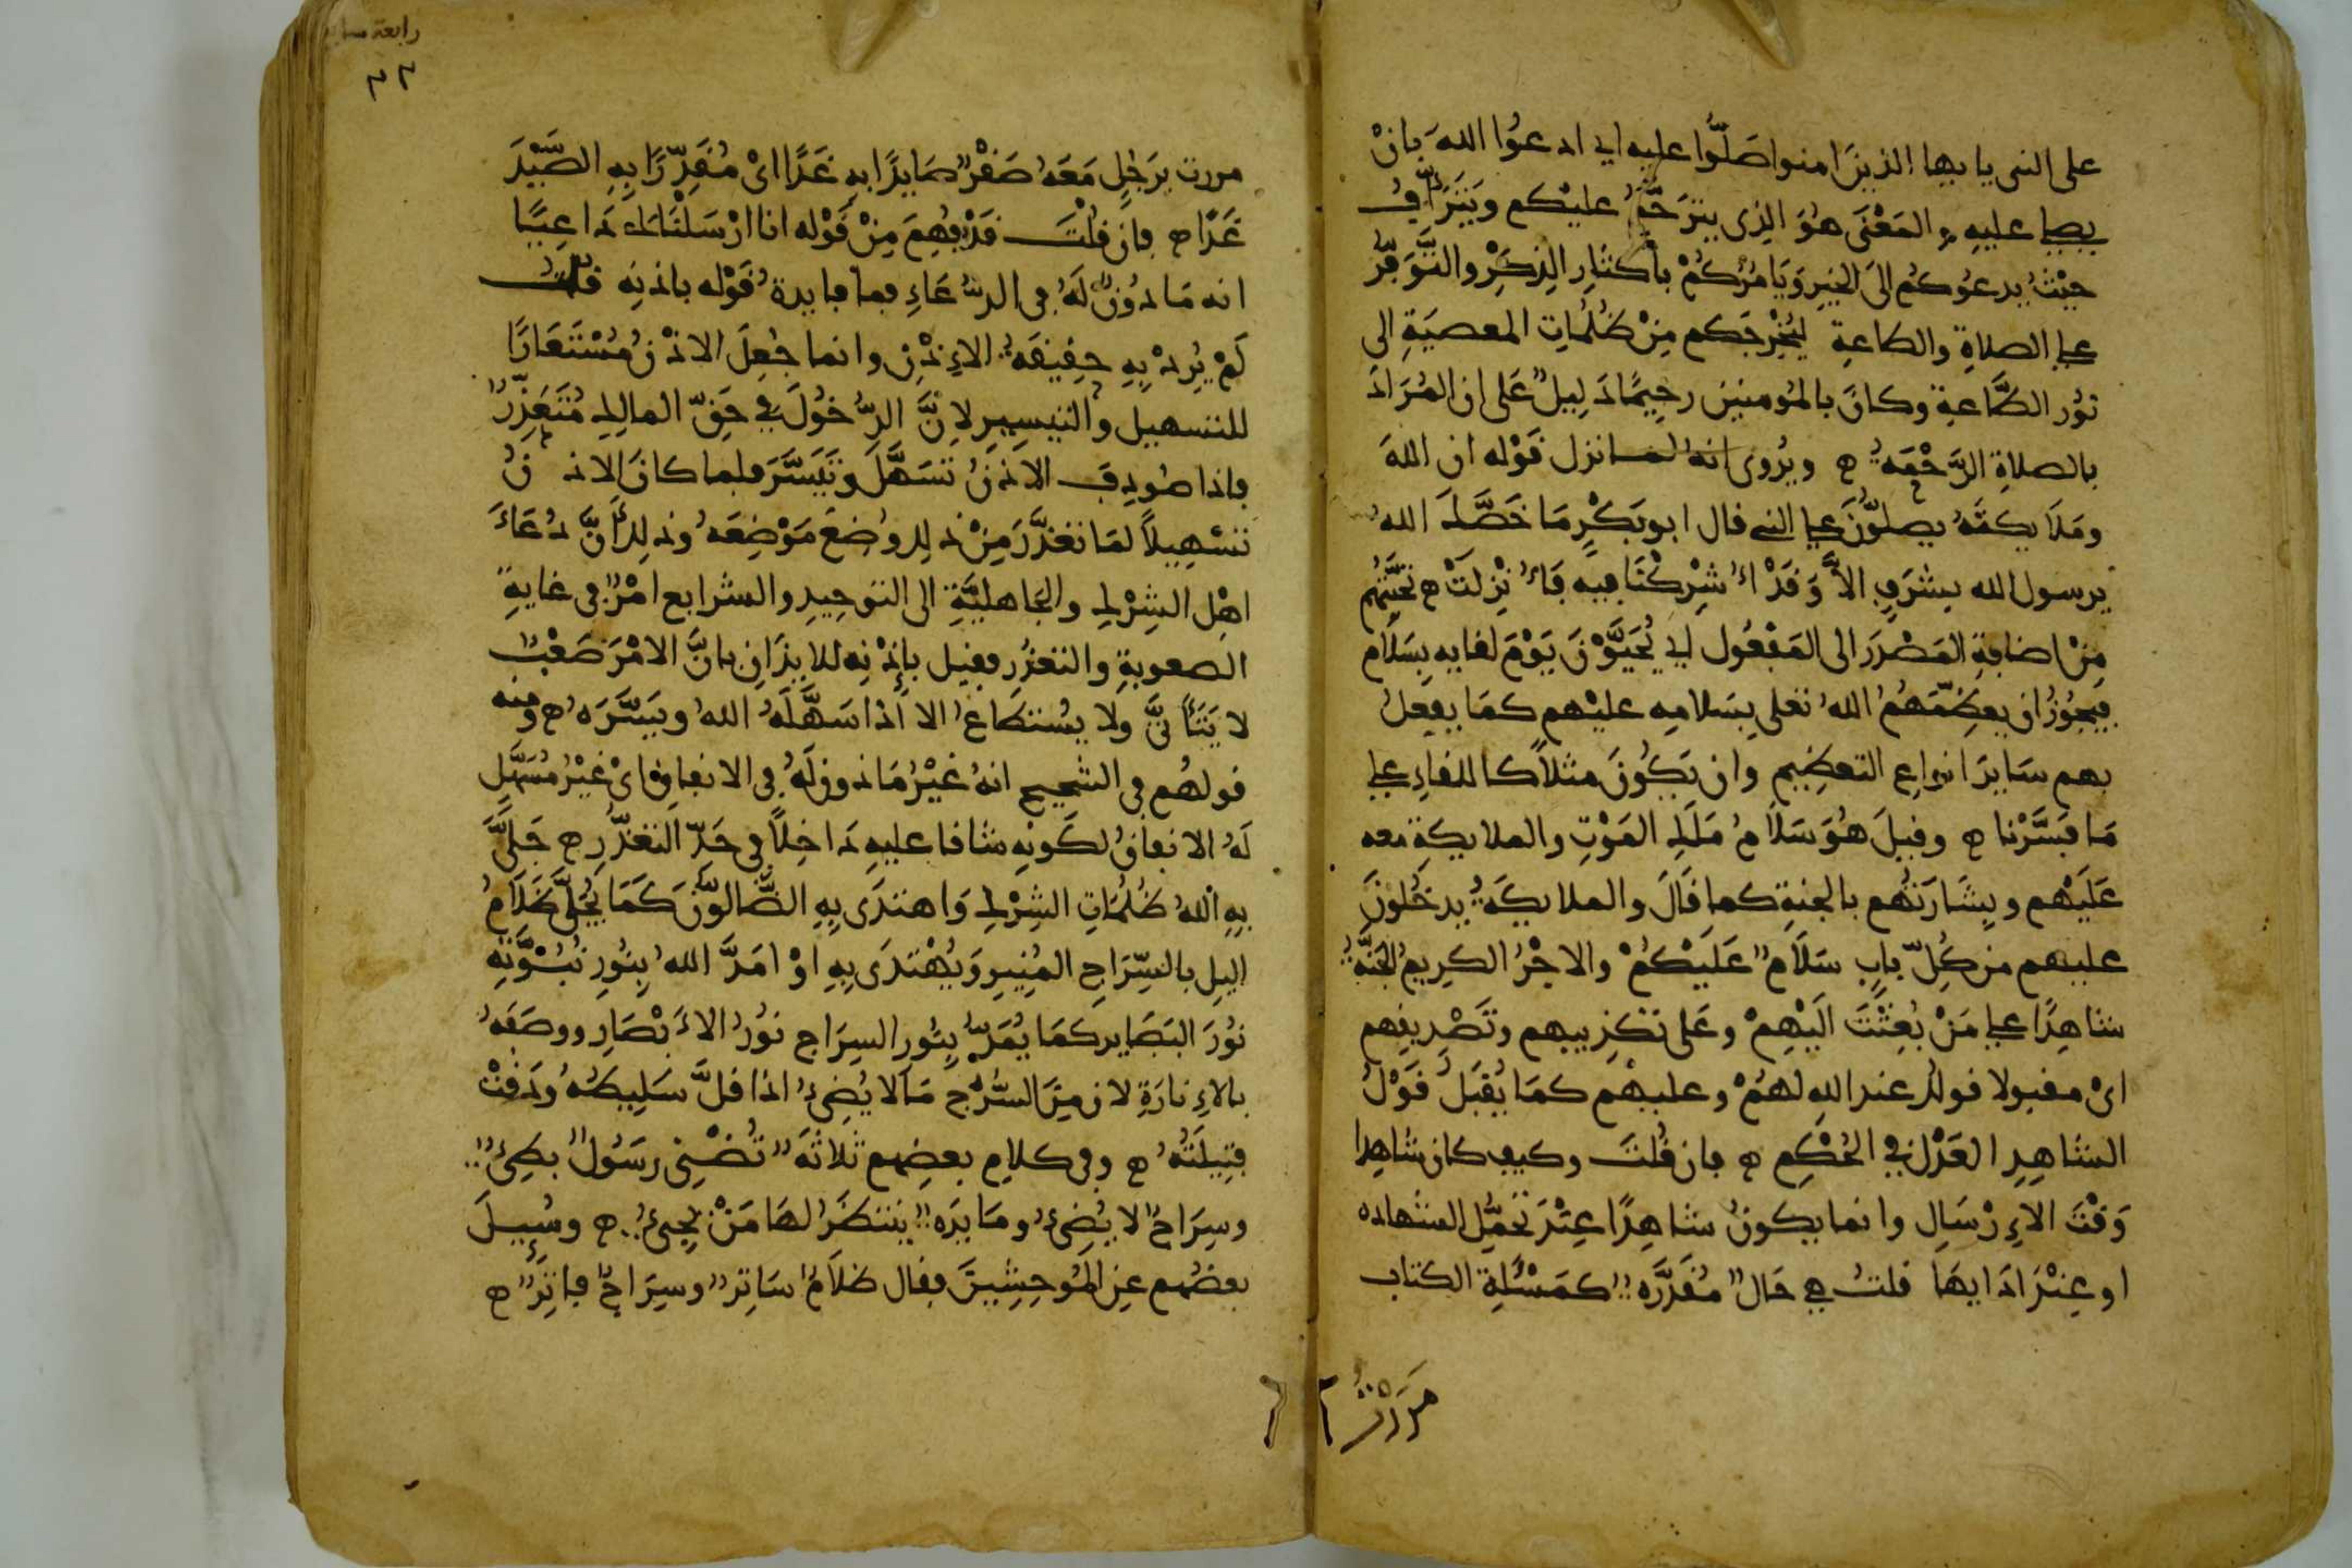 على النبى يا يها الذين امنوا صَلُّوا عليه اى ادعوُا اللهَ بانْ
يصلى عليهِ والمَعْنَى هوَ الذى يترحَّمُ عليْكم ويَتَرَأَّفُ
حيْثُ يدعوُكم الىَ الخيرِ وَيَامُرُكمْ باكثارِ الذِكرِ والتَّوَفُّرِ
على الصلاةِ والطاعةِ ليُخْرِجَكم مِنْ ظُلُماتِ المعصيَةِ الى
نوُر الطَّاعةِ وكانَ بالمُومنين رحِيمًا دَليِلٌ عَلى ان المُرَادَ
بالصلاةِ الرَّحْمَةُ ه ويُروى انهُ لمـا نزل قَوْله ان اللهَ
ومَلَايكتَهُ يصلوُّنَ على النبى قال ابو بَكْرٍ مَا خَصَّكَ اللهُ
يرسول الله بِشَرَفٍ الاَّ وَقَدْ اشْرِكْنَا فيهِ فَأُنْزِلَتْ ه تَحَيَّتهُم
مِنْ اضافةِ المَصْدَرِ الى المَفْعُول اى يُحَيَّوْنَ يَوْمَ لقايه بِسَلَامٍ
فيَجوُزُ ان يعظِّمَهُمُ اللهُ تعلى بِسَلامِه عليْهم كمَا يفعِلُ
بهم سَايرَ انواعِ التعظِيم وان يَكوُنَ مثلاً كاللقاءِ على
مَا فَسَّرْنا ه وقيلَ هوَ سَلَامُ مَلَكِ المَوْتِ والملايكةِ معه
عَلَيْهم وبِشَارَتهُم بالجنةِ كما قَالَ والملايكَةُ يدخُلونَ
عليهم من كلِّ بابٍ سَلَامٌ عَلَيْكمْ والاجْرُ الكريمُ الجَنَّةُ
شاهِدًا على مَنْ بُعِثْتَ اليْهِمْ وعَلى تكْذِيبِهم وتَصْديقِهم
اىْ مقبولا قولك عند اللهِ لهُمْ وعليْهم كمَا يُقْبَلُ قَوْلُ
الشاهِدِ العَدْل فى الحُكْمِ ه فان قُلتَ وكيف كان شاهِدا
وَقْتَ الاِرْسَالِ وانما يكونُ شاهِدًا عِنْدَ تحَمُّلِ الشهاده
او عِنْدَ ادَايهَا قلتُ هى حَالٌ مُقَدَّرَه كمَسْئَلةِ الكتاب
مَرَرْتُ
رابعة
مررت بِرَجُلٍ مَعَهُ صَقْرٌ صَايدًا بِهِ غَدًا اىْ مُقَدِّرًا بِهِ الصَّيْدَ
غَدًا ه فان قلْتَ قَدْ فُهِمَ مِنْ قَوْله انا ارْسَلْنَاكَ دَاعِيًا
انه مَاذوُنٌ لَهُ فى الدُّعَاءِ فما فايدةُ قَوْله باذنِه قلتُ
لَمْ يُرِدْ بِهِ حقِيقَةَ الاِذْنِ وانما جُعِلَ الاذْنُ مُسْتَعَارًا
للتسهيل والتيسِيرِ لاِنَّ الدُّخُولَ فى حَقِّ المالِك مُتَعَذِّرٌ
فاذا صُودِفَ الاذنُ تسَهَّلَ وتَيَسَّرَ فلما كانَ الاذنُ
تسْهِيلاً لمَا تعَذَّرَ مِنْ ذلِك وُضِعَ مَوْضِعَهُ وذلِك أنَّ دُعَاءَ
اهْلِ الشِرْكِ والجَاهليَّةِ الى التوحِيدِ والشرايع امْرٌ فى غايةِ
الصعوبةِ والتعذُّرِ فقيل بإِذْنِه للايذَانِ بانَّ الامْرَ صَعْبٌ
لا يَتَأَتَّى ولا يسُتطَاعُ الا اذا سَهَّلَهُ اللهُ ويَسَّرَه ه ومنه
قولهُم فى الشحيح انهُ غيْرُ مَاذون لَهُ فى الانفاق اىْ غيْرُ مُسَهَّلٍ
لَهُ الانفاقُ لكَونِه شاقا عليهِ دَاخِلاً فى حَدِّ التعَذُّرِ ه جَلَّى
بِهِ اللهُ ظلُمَاتِ الشِرْكِ وَاهتدَى بِهِ الضَّالوُّنَ كَمَا يُجَلَّى ظَلَامُ
اليلِ بالسِّرَاجِ المُنِيرِ وَيُهْتدَى بِهِ اوْ امَدَّ اللهُ بِنوُرِ نُبُوَّتِهِ
نوُرَ البَصَاير كمَا يُمَدُّ بِنوُر السِرَاج نوُرُ الاَبْصَارِ ووصَفَهُ
بالاِنارَةِ لان مِنَ السُّرُج مَا لا يُضِىءُ اذا قلَّ سَلِيطُهُ ودَقتْ
فتِيلَتُهُ ه وفى كلامِ بعضِهم ثلاثةٌ تُضْنِى رَسُولٌ بطِىءٌ
وسِرَاجٌ لا يُضِىءُ ومَايدَه ينتظَرُ لهَا مَنْ يجىءُ ه وسُيِلَ
بعضُهم عن المُوحِشِينَ فقال ظلَامٌ سَاتِرٌ وسِرَاجٌ فاتِرٌ ه